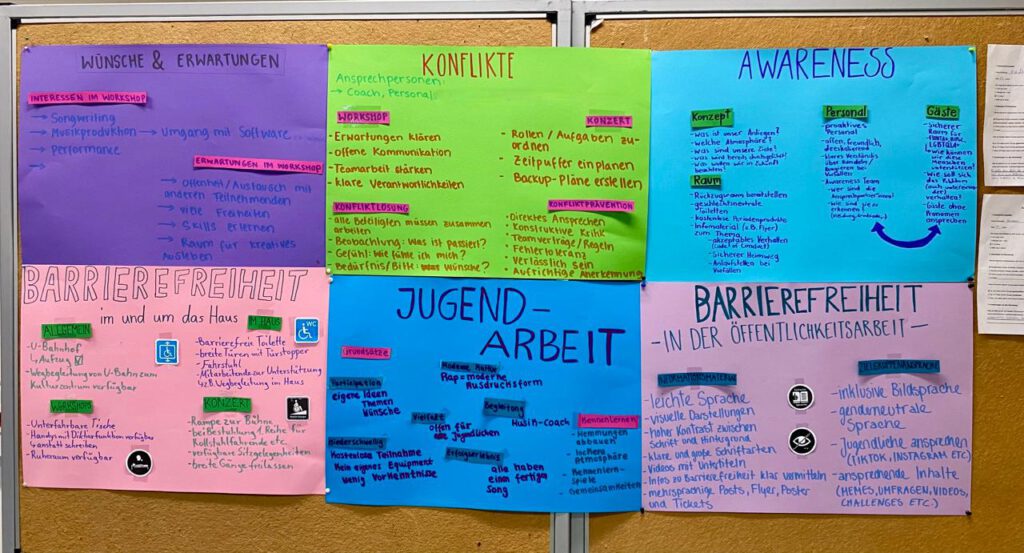 WÜNSCHE & ERWARTUNGEN
INTERESSEN IM WORKSHOP
→ Songwriting
→ Musikproduktion → Umgang mit Software
→ Performance
→
ERWARTUNGEN IM WORKSHOP
→ Offenheit/Austausch mit
anderen Teilnehmenden
→ viele Freiheiten
→ Skills erlernen
→ Raum für kreatives
Ausleben
KONFLIKTE
Ansprechpersonen:
→ Coach, Personal
WORKSHOP
- Erwartungen klären
- offene Kommunikation
- Teamarbeit stärken
- klare Verantwortlichkeiten
KONZERT
- Rollen / Aufgaben zu-
ordnen
- Zeitpuffer einplanen
- Backup-Pläne erstellen
KONFLIKTLÖSUNG
- alle Beteiligten müssen zusammen
arbeiten
- Beobachtung: Was ist passiert?
- Gefühl: Wie fühle ich mich?
- Bedürfnis/Bitte: Wünsche?
KONFLIKTPRÄVENTION
- Direktes Ansprechen
- Konstruktive Kritik
- Teamverträge/Regeln
- Fehlertoleranz
- Verlässlich sein
- Aufrichtige Anerkennung
AWARENESS
Konzept
- was ist unser Anliegen?
- welche Atmosphäre?
- was sind unsere Ziele?
- was wird bereits
- was wollen wir in Zukunft
Raum
- Rückzugsraum bereitstellen
- geschlechtsneutrale
Toiletten
- kostenlose Periodenprodukte
- Infomaterial (z.B. Flyer)
zum Thema
- akzeptables Verhalten
(Code of Conduct)
- Sicherer Heimweg
- Anlaufstellen bei
Vorfällen
Personal
- proaktives
Personal
- offen, freundlich,
- klares Verständnis
über Handeln/
Reagieren bei
Vorfällen
- Awareness Team
- wer sind die
Ansprechpartner*innen?
- wie sind sie zu
erkennen?
Gäste
- sicherer
Raum für
LGBTQIA+
- wie können
wir diese
Menschen
unterstützen?
- Wie soll sich
das Publikum
verhalten?
- Gäste ohne
Pronomen
ansprechen
BARRIEREFREIHEIT
im und um das Haus
ALLGEMEIN
- U-Bahnhof
↳ Aufzug ☑
- Wegbegleitung von U-Bahn zum
Kulturzentrum verfügbar
IM HAUS
WC
- Barrierefreie Toilette
- breite Türen mit Türstopper
- Fahrstuhl
- Mitarbeitende zur Unterstützung
u. z.B. Wegbegleitung im Haus
WORKSHOPS
- Unterfahrbare Tische
- Handys mit Diktierfunktion verfügbar
↳ anstatt schreiben
- Ruheraum verfügbar
KONZERT
- Rampe zur Bühne
- bei Bestuhlung 1. Reihe für
Rollstuhlfahrende etc.
- verfügbare Sitzgelegenheiten
- breite Gänge freilassen
JUGEND-
ARBEIT
Grundsätze
Partizipation
eigene Ideen
Themen
Wünsche
Moderne Kultur
Rap = moderne
Ausdrucksform
Vielfalt
offen für
alle Jugendlichen
Begleitung
Musik-Coach
Niederschwellig
Kostenlose Teilnahme
Kein eigenes Equipment
wenig Vorkenntnisse
Erfolgserlebnis
alle haben
einen fertigen
Song
Kennenlernen
- Hemmungen
abbauen
- lockere
Atmosphäre
- Kennenlern-
spiele
- Gemeinsamkeiten
BARRIEREFREIHEIT
- IN DER ÖFFENTLICHKEITSARBEIT -
INFORMATIONSMATERIAL
- leichte Sprache
- visuelle Darstellungen
- hoher Kontrast zwischen
Schrift und Hintergrund
- klare und große Schriftarten
- Videos mit Untertiteln
- Infos zu Barrierefreiheit klar vermitteln
- mehrsprachige Posts, Flyer, Poster
und Tickets
ZIELGRUPPENANSPRACHE
- inklusive Bildsprache
- genderneutrale
Sprache
- Jugendliche ansprechen
(TIKTOK, INSTAGRAM ETC)
- ansprechende Inhalte
(MEMES, UMFRAGEN, VIDEOS,
CHALLENGES ETC.)